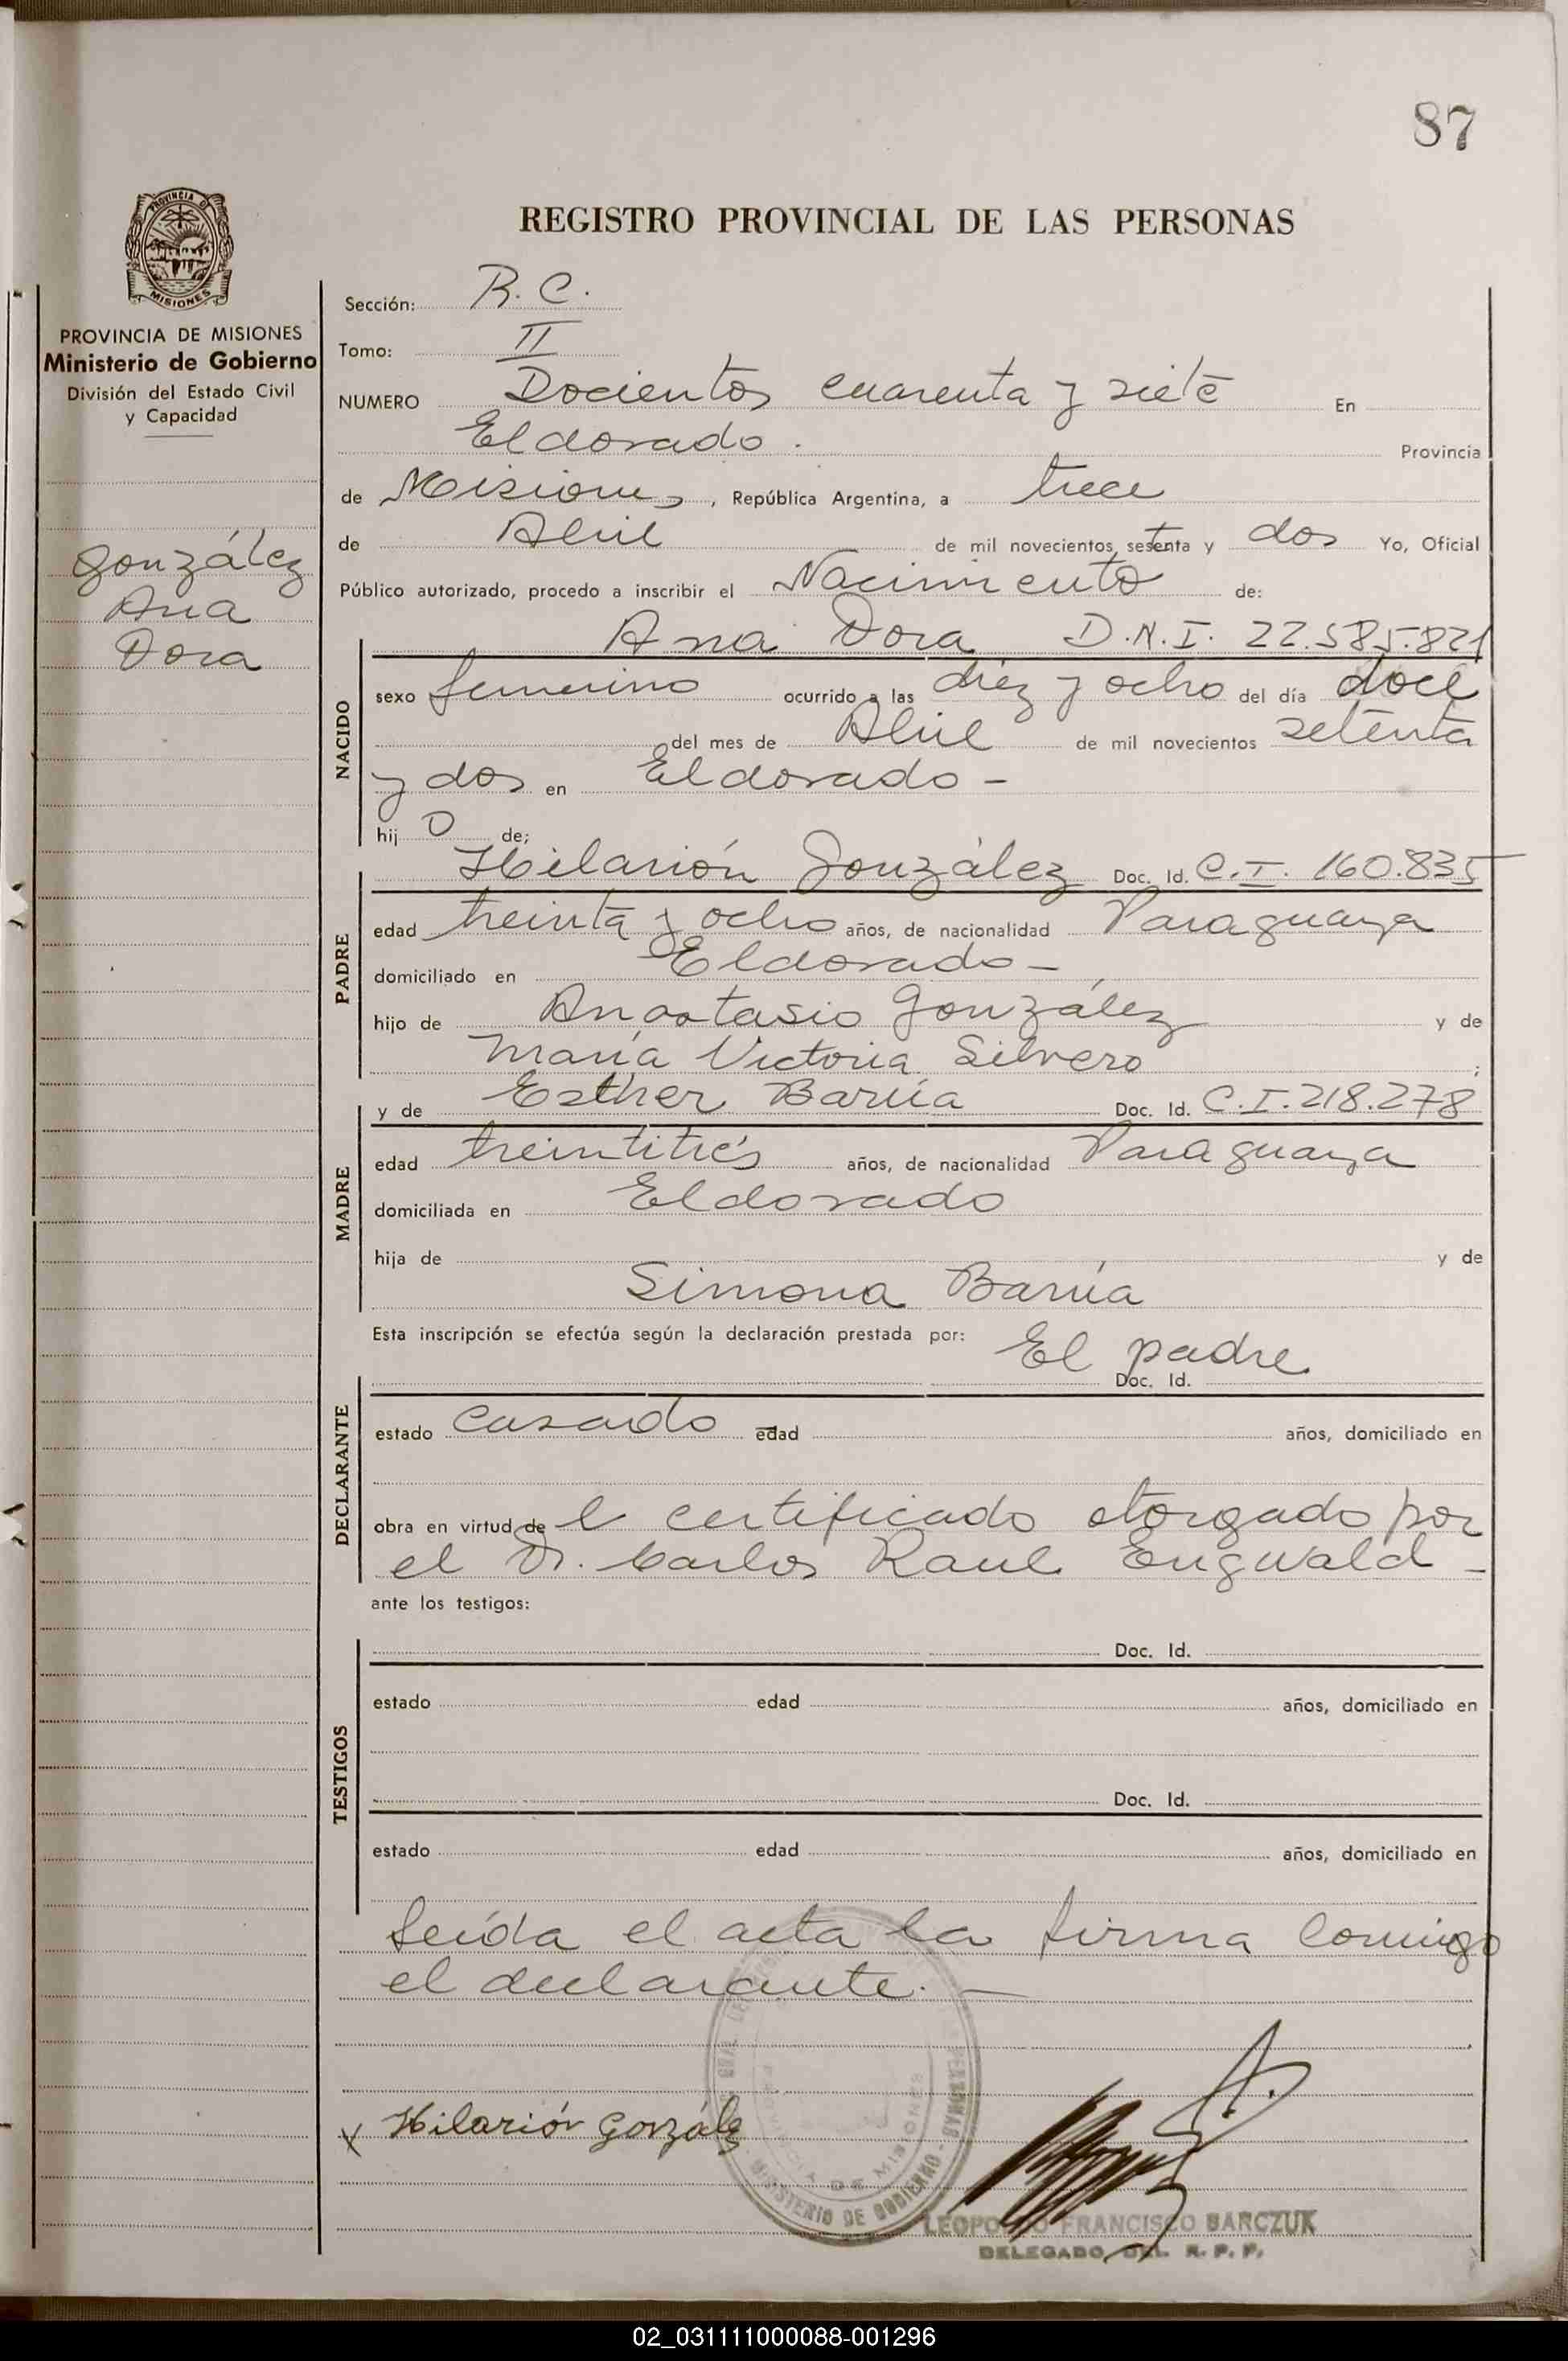 87
PROVINCIA DE
MISIONES
PROVINCIA DE MISIONES
Ministerio de Gobierno
División del Estado Civil
y Capacidad
González
Ana
Dora
REGISTRO PROVINCIAL DE LAS PERSONAS
Sección: R. C.
Tomo: II
NUMERO Docientos cuarenta y siete En
Eldorado. Provincia
de Misiones, República Argentina, a trece
de Abril de mil novecientos setenta y dos Yo, Oficial
Público autorizado, procedo a inscribir el Nacimiento de:
Ana Dora D.N.I. 22.585.821
NACIDO
sexo femenino ocurrido a las diez y ocho del día doce
del mes de Abril de mil novecientos setenta
y dos en Eldorado -
hij a de;
PADRE
Hilarión González Doc. Id. C.I. 160.835
edad treinta y ocho años, de nacionalidad Paraguaya
domiciliado en Eldorado -
hijo de Anastasio González y de
María Victoria Silvero ;
MADRE
y de Esther Barúa Doc. Id. C.I. 218.278
edad treintitrés años, de nacionalidad Paraguaya
domiciliada en Eldorado
hija de y de
Simona Barúa
Esta inscripción se efectúa según la declaración prestada por: El padre
DECLARANTE
Doc. Id.
estado casado edad años, domiciliado en
obra en virtud de l certificado otorgado por
el Dr. Carlos Raul Engwald -
ante los testigos:
TESTIGOS
Doc. Id.
estado edad años, domiciliado en
Doc. Id.
estado edad años, domiciliado en
Leída el acta la firma comigo
el declarante. -
x Hilarión González
PROVINCIA DE MISIONES
MINISTERIO DE GOBIERNO - PERSONAS
LEOPOLDO FRANCISCO BARCZUK
DELEGADO DEL R. P. P.
02_031111000088-001296